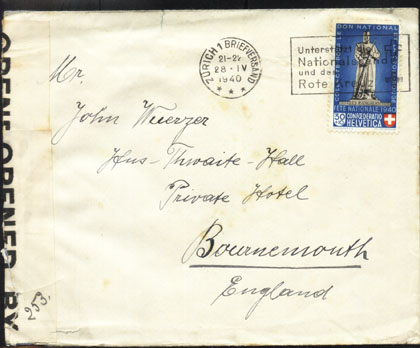 ZÜRICH 1 BRIEFVERSAND
21-22
28·IV
1940
Unterstützt
National
und das
Rote Kreuz
DON NATIONAL
FÊTE NATIONALE 1940
30 CONFOEDERATIO
HELVETICA
Mr.
John Wuerzer
Hus-Thwaite-Hall
Private Hotel
Bournemouth
England
OPENED BY
253.